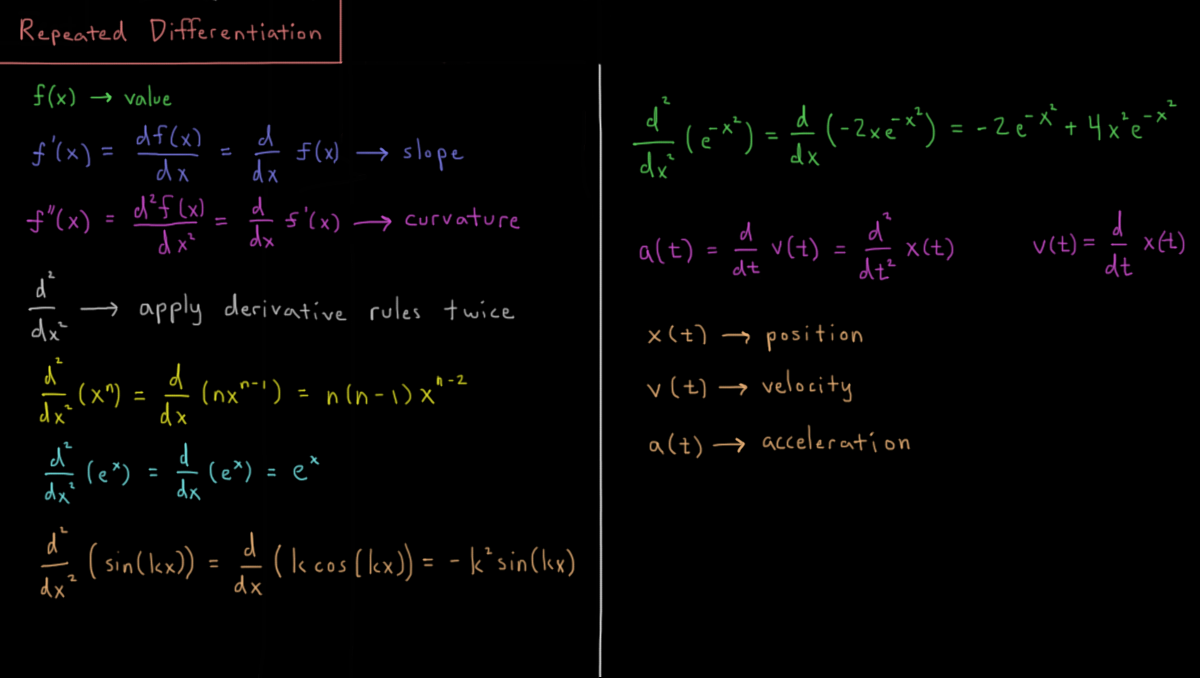 Repeated Differentiation
f(x) → value
f'(x) = df(x)/dx = d/dx f(x) → slope
f"(x) = d²f(x)/dx² = d/dx f'(x) → curvature
d²/dx² → apply derivative rules twice
d²/dx² (xⁿ) = d/dx (nxⁿ⁻¹) = n(n-1)xⁿ⁻²
d²/dx² (eˣ) = d/dx (eˣ) = eˣ
d²/dx² (sin(kx)) = d/dx (k cos(kx)) = -k² sin(kx)
d²/dx² (e^-x²) = d/dx (-2xe^-x²) = -2e^-x² + 4x²e^-x²
a(t) = d/dt v(t) = d²/dt² x(t) v(t) = d/dt x(t)
x(t) → position
v(t) → velocity
a(t) → acceleration